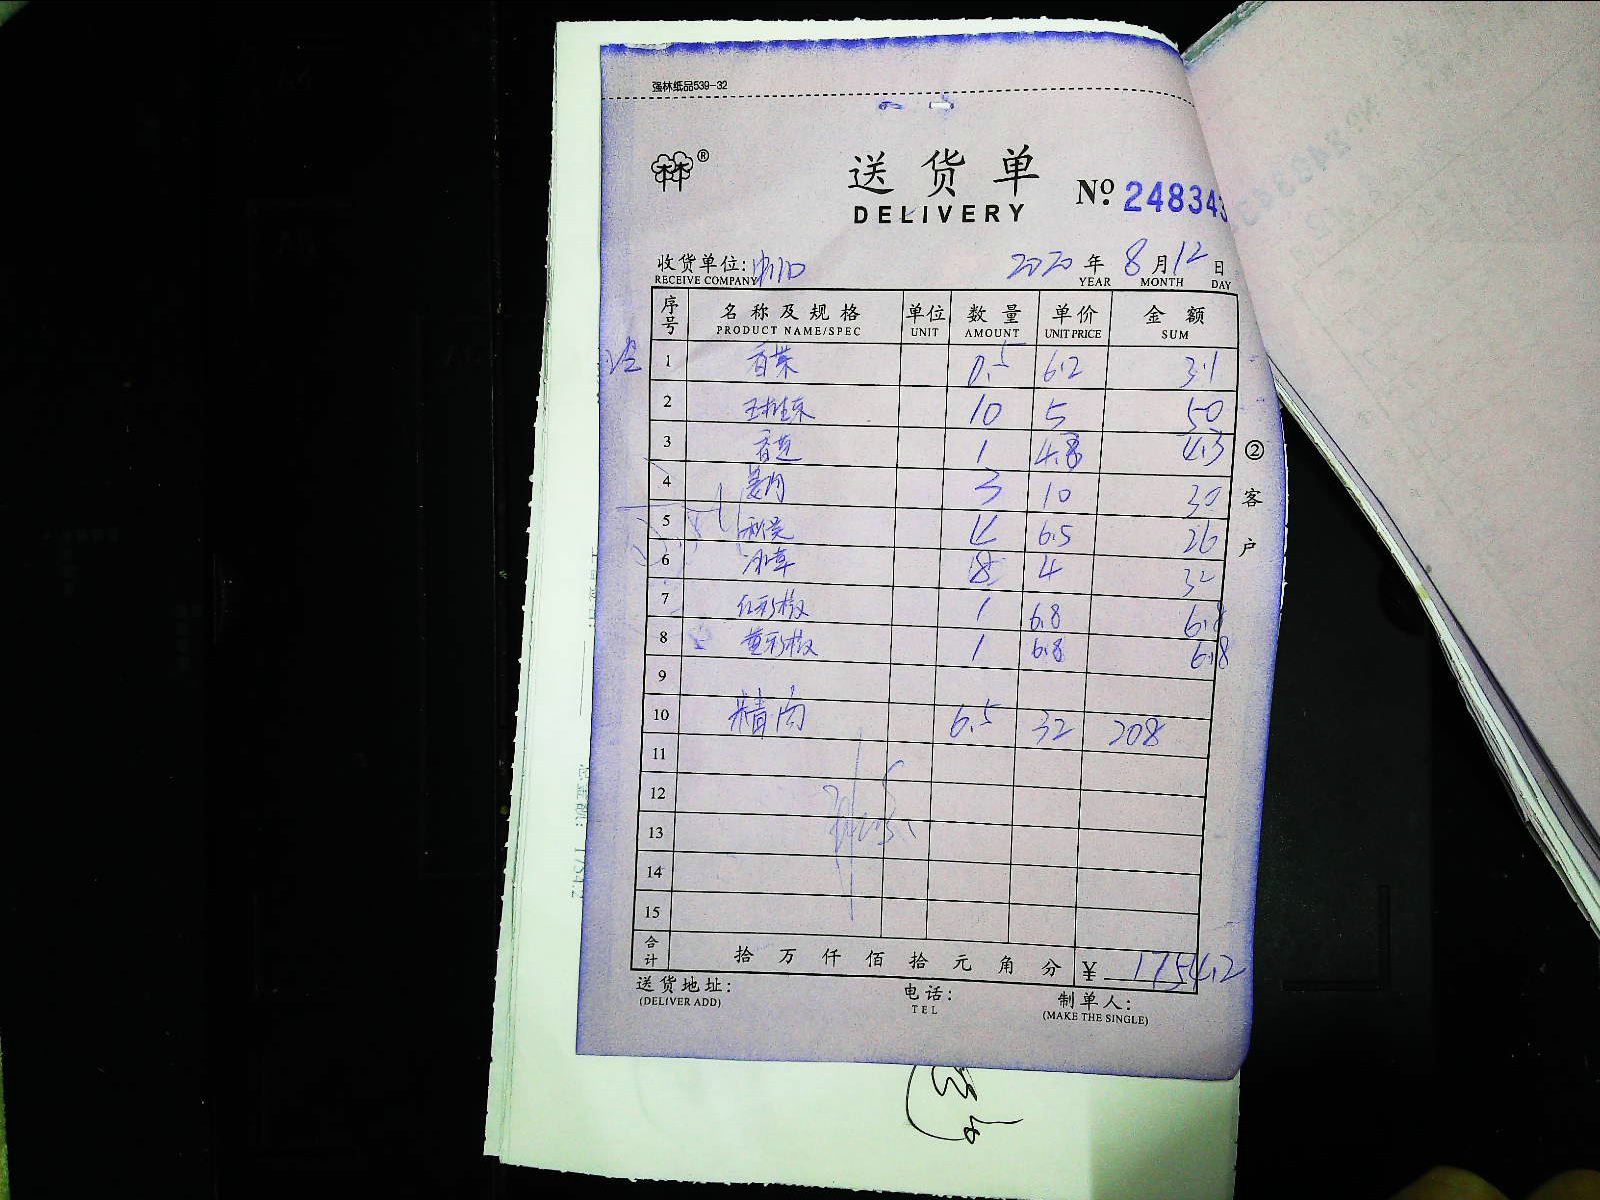 强林纸品539-32
林®
送货单
DELIVERY
No. 248343
收货单位:
RECEIVE COMPANY
2020 年 8 月 12 日
YEAR MONTH DAY
序号 名称及规格 单位 数量 单价 金额
PRODUCT NAME/SPEC UNIT AMOUNT UNIT PRICE SUM
1 香菜 0.5 6.2 3.1
2 10 5 50
3 1 4.8 4.3
4 姜肉 3 10 30
5 4 6.5 26
6 冰草 8 4 32
7 红彩椒 1 6.8 6.8
8 黄彩椒 1 6.8 6.8
9
10 精肉 6.5 32 208
11
12
13
14
15
合计 拾 万 仟 佰 拾 元 角 分 ¥ 1754.2
送货地址: 电话: 制单人:
(DELIVER ADD) TEL (MAKE THE SINGLE)
②客户
总金额: 1754.2